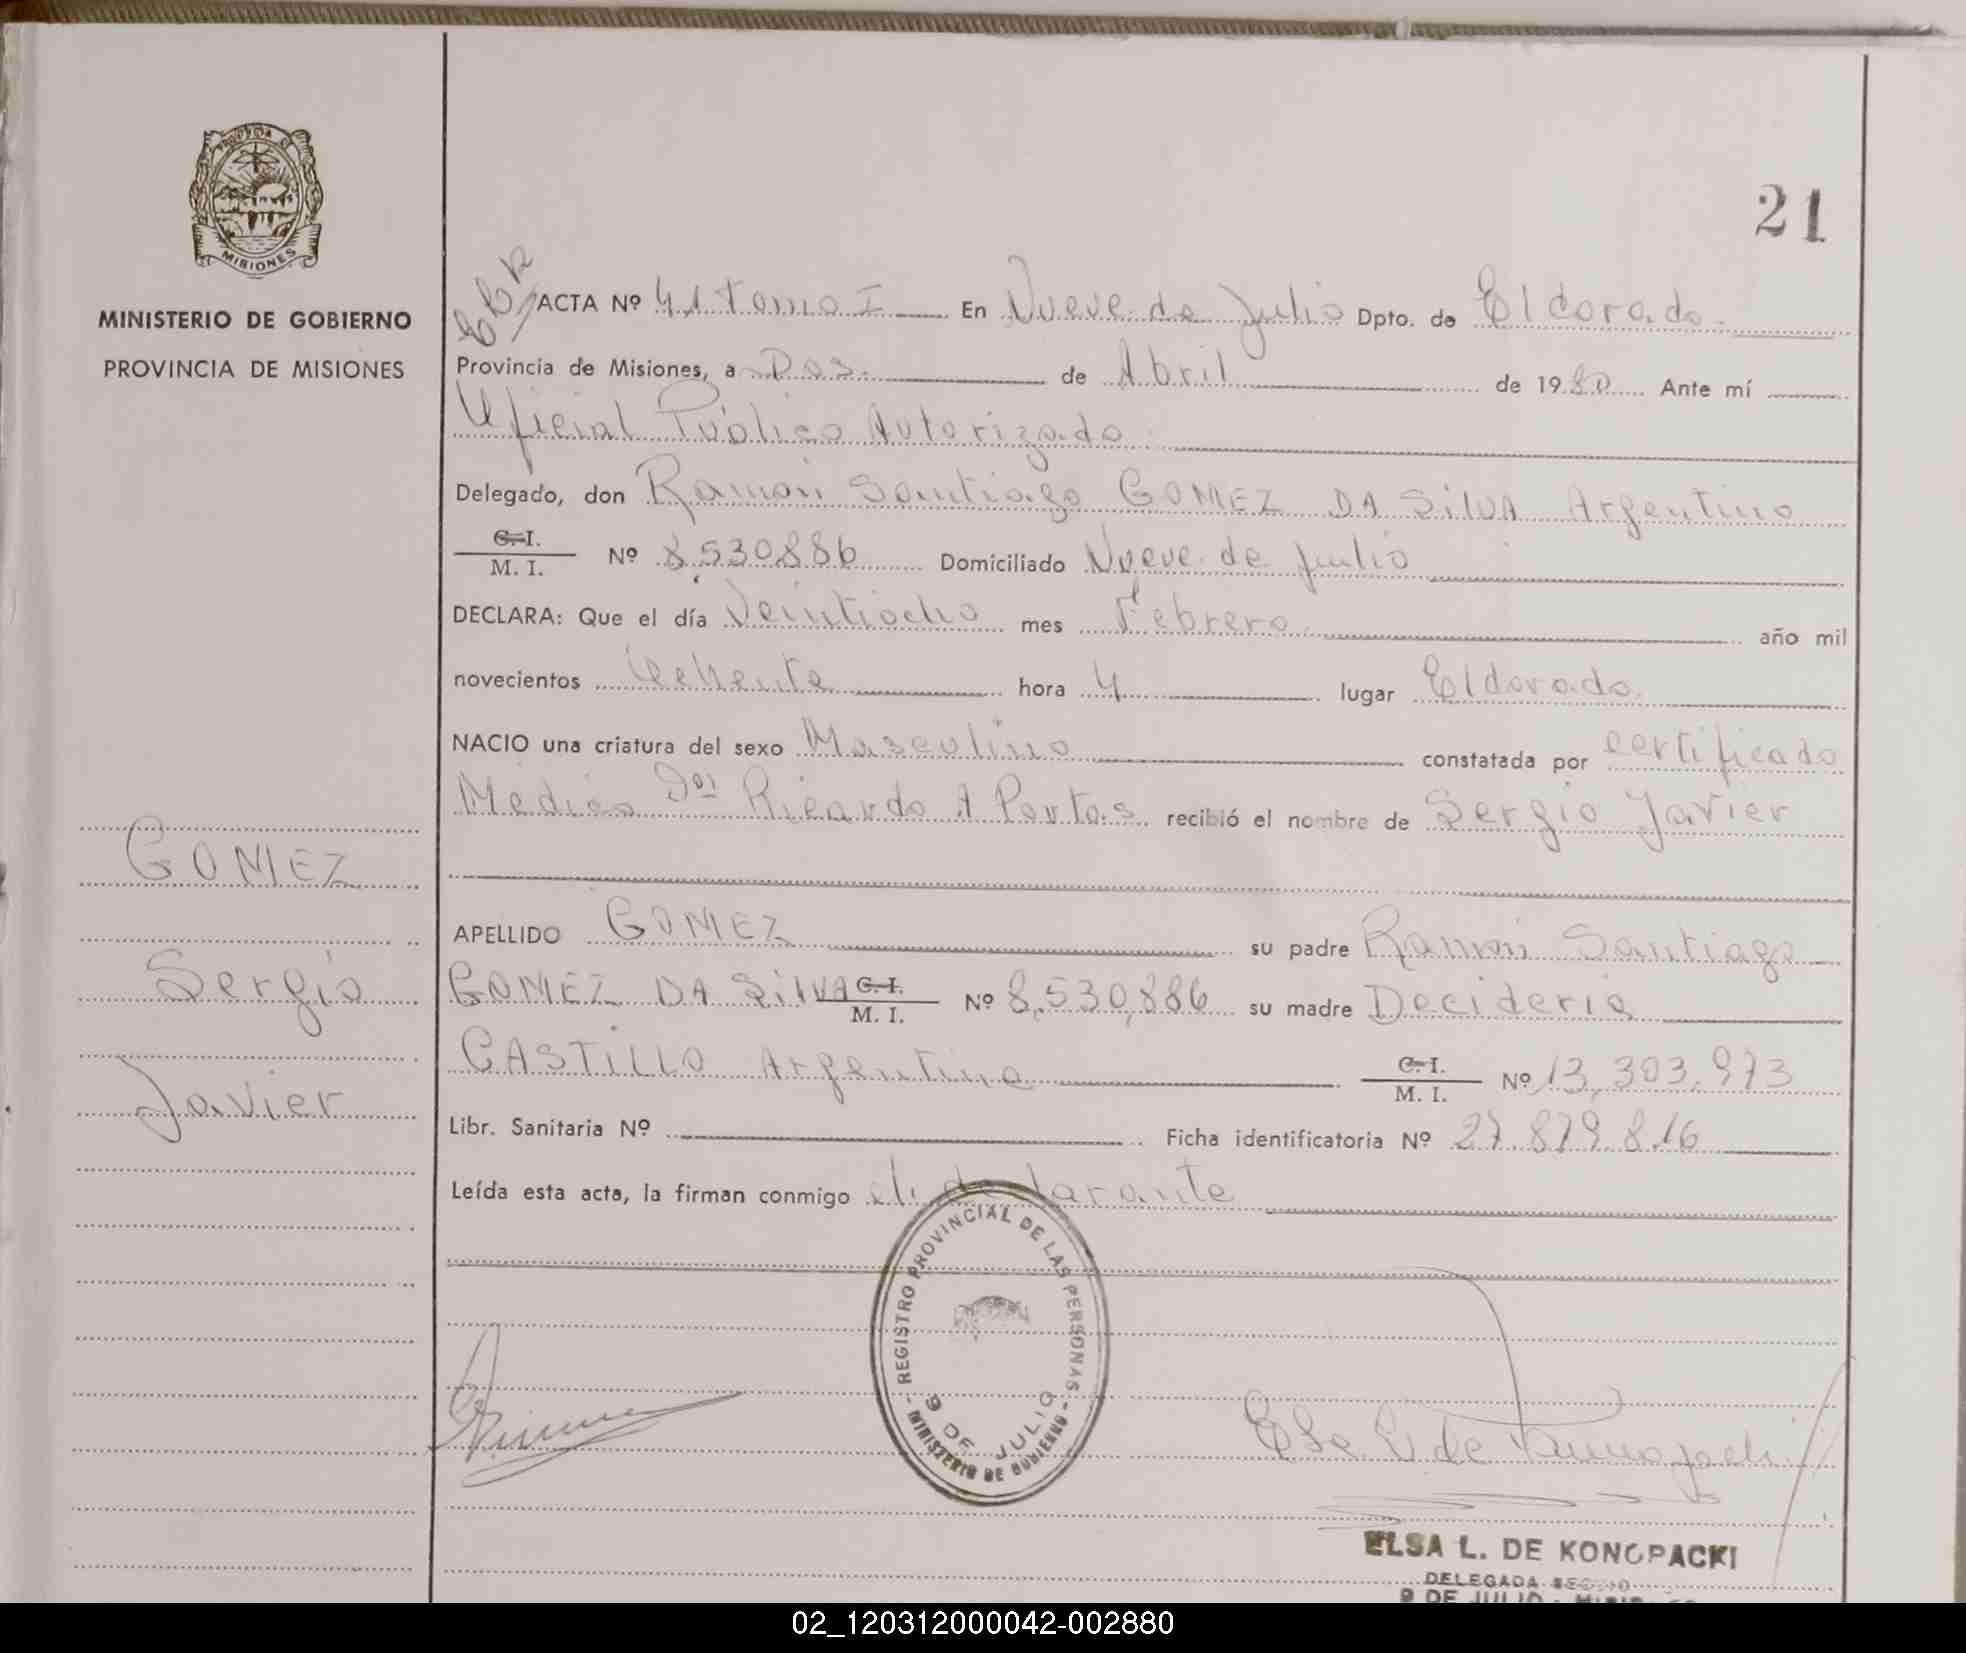 PROVINCIA DE
MISIONES
MINISTERIO DE GOBIERNO
PROVINCIA DE MISIONES
21
ACTA Nº 41 Tomo I En Nueve de Julio Dpto. de Eldorado
Provincia de Misiones, a Dos de Abril de 1980 Ante mí
Oficial Público Autorizado
Delegado, don Ramón Santiago GOMEZ DA SILVA Argentino
C. I.
M. I. Nº 8,530886 Domiciliado Nueve de Julio
DECLARA: Que el día Veintiocho mes Febrero año mil
novecientos Ochenta hora 4 lugar Eldorado.
NACIO una criatura del sexo Masculino constatada por certificado
Médico Ricardo A Portas recibió el nombre de Sergio Javier
APELLIDO GOMEZ su padre Ramón Santiago
GOMEZ DA SILVA C. I.
M. I. Nº 8,530,886 su madre Decideria
CASTILLO Argentina C. I.
M. I. Nº 13,303,973
Libr. Sanitaria Nº Ficha identificatoria Nº 27.879.816
Leída esta acta, la firman conmigo el declarante
GOMEZ
Sergio
Javier
REGISTRO PROVINCIAL DE LAS PERSONAS
9 DE JULIO
MINISTERIO DE GOBIERNO
ELSA L. DE KONOPACKI
DELEGADA
9 DE JULIO
02_120312000042-002880